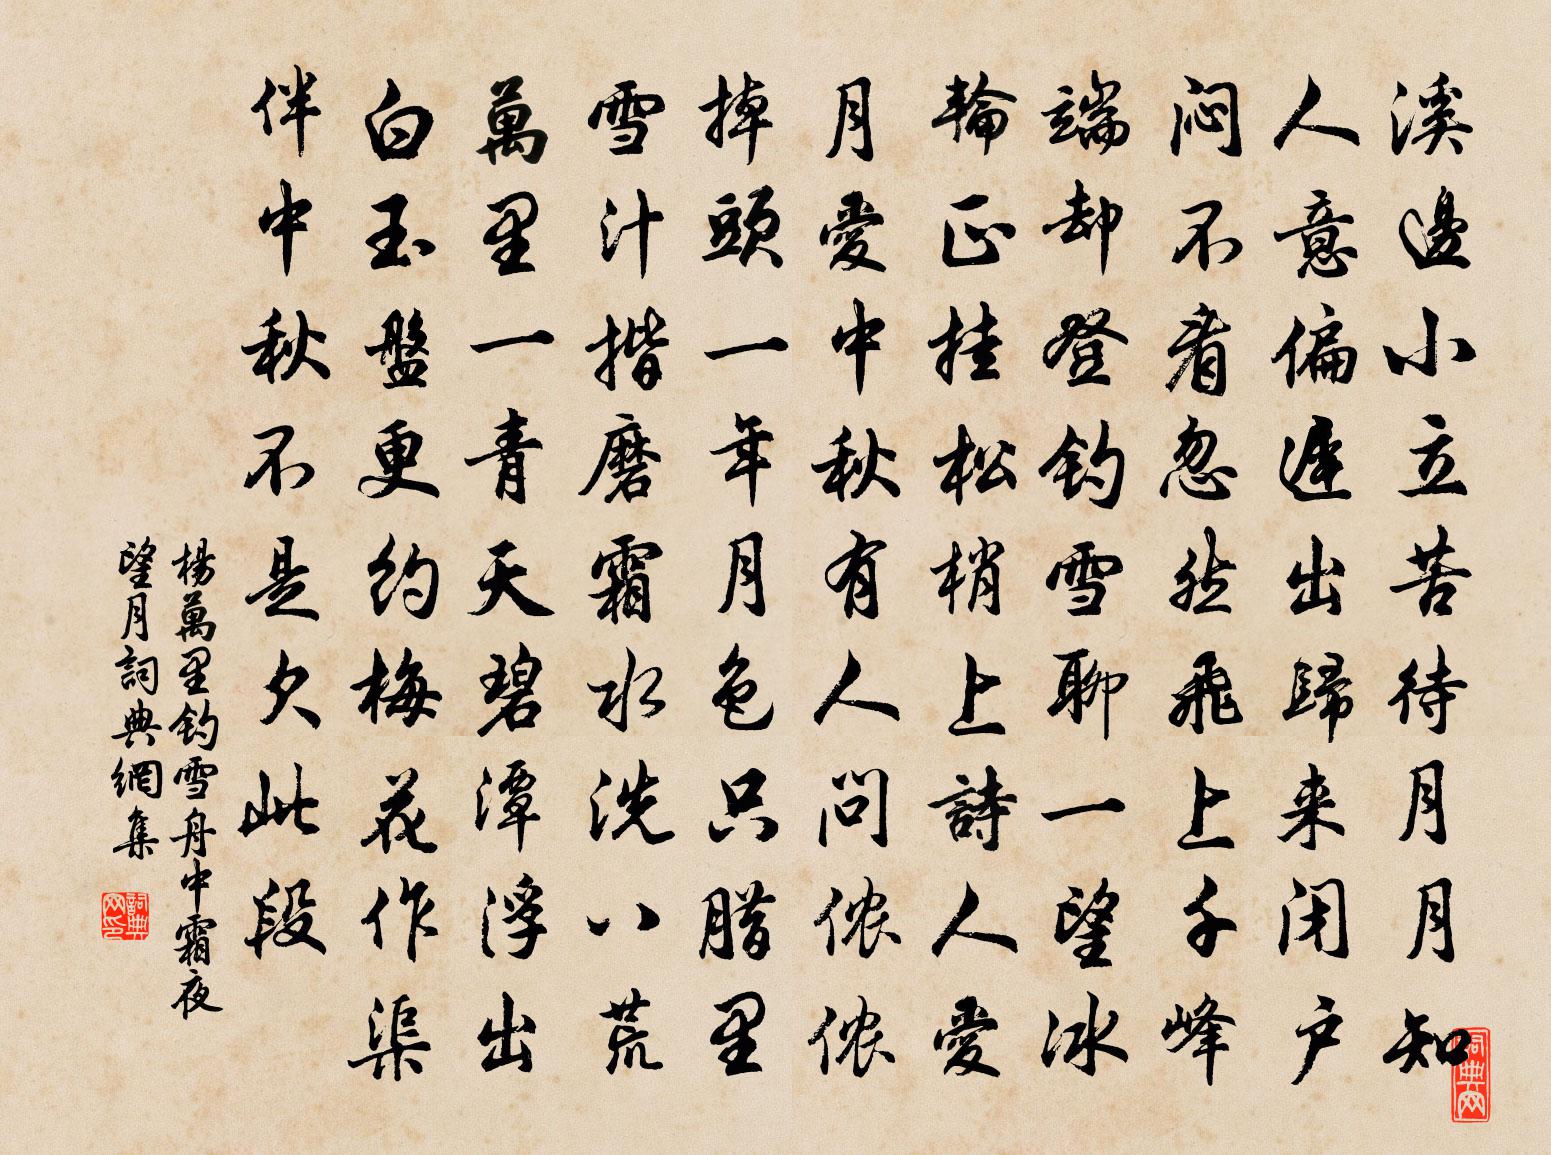 溪邊小立苦待月月知
人意偏遲出歸来闭户
闷不看忽然飛上千峰
端却登钓雪聊一望冰
輪正挂松梢上詩人愛
月愛中秋有人问侬侬
掉頭一年月色只腊里
雪汁揩磨霜水洗八荒
萬里一青天碧潭浮出
白玉盤更约梅花作渠
伴中秋不是欠此段
楊萬里钓雪舟中霜夜
望月詞典網集
詞典网印
词典网